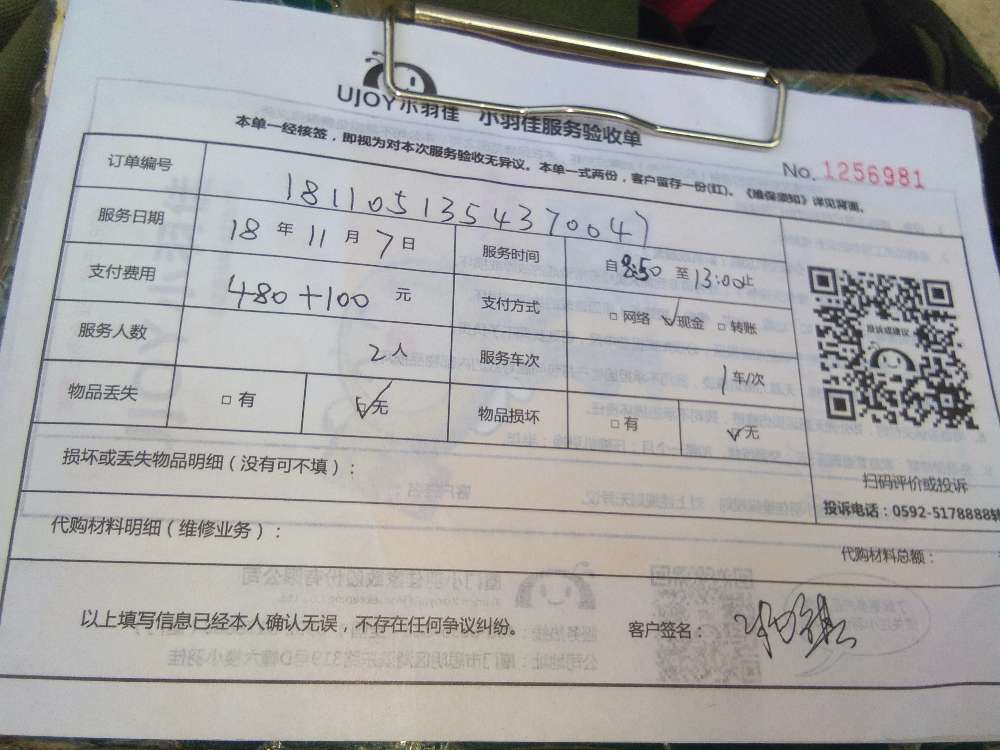 UJOY小羽佳 小羽佳服务验收单
本单一经核签，即视为对本次服务验收无异议。本单一式两份，客户留存一份(红)。《维保须知》详见背面。
No. 1256981
订单编号 1811051354370047
服务日期 18 年 11 月 7 日 服务时间 自 8:50 至 13:00 止
支付费用 480+100 元 支付方式 □ 网络 ☑ 现金 □ 转账
服务人数 2人 服务车次 1 车/次
物品丢失 □ 有 ☑ 无 物品损坏 □ 有 ☑ 无
投诉或建议
扫码评价或投诉
投诉电话：0592-5178888转
损坏或丢失物品明细（没有可不填）：
代购材料明细（维修业务）：
代购材料总额：
以上填写信息已经本人确认无误，不存在任何争议纠纷。 客户签名：